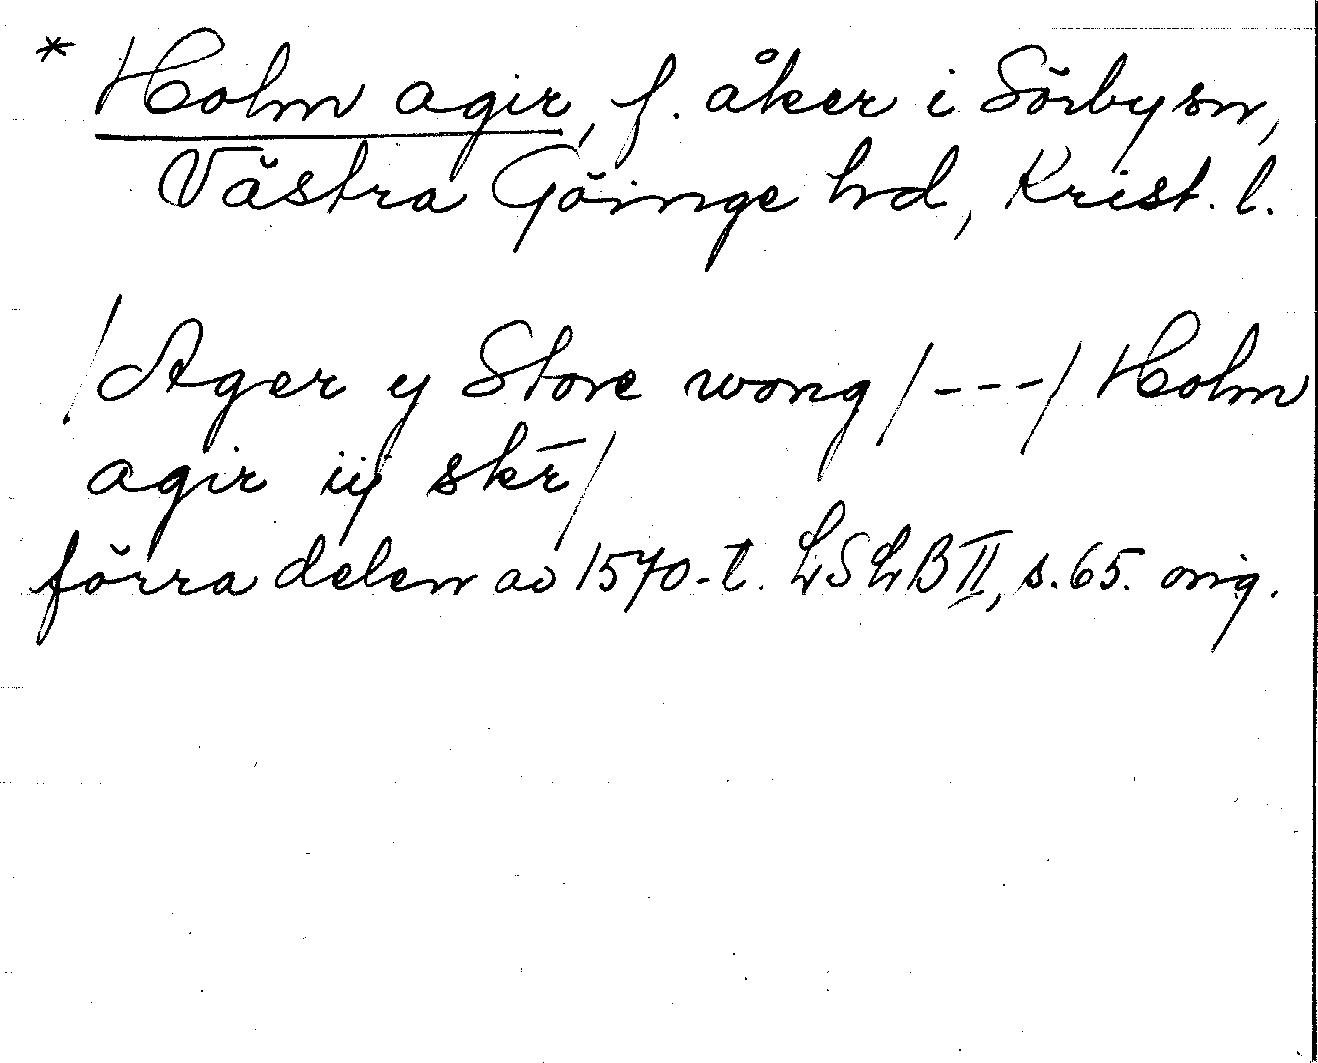 * Holm agir, f. åker i Sörby sn,
Västra Göinge hd, Krist. l.
/Ager y Store wong/---/Holm
agir iij skr̄/
förra delen av 1570-t. LSLB II, s. 65. orig.